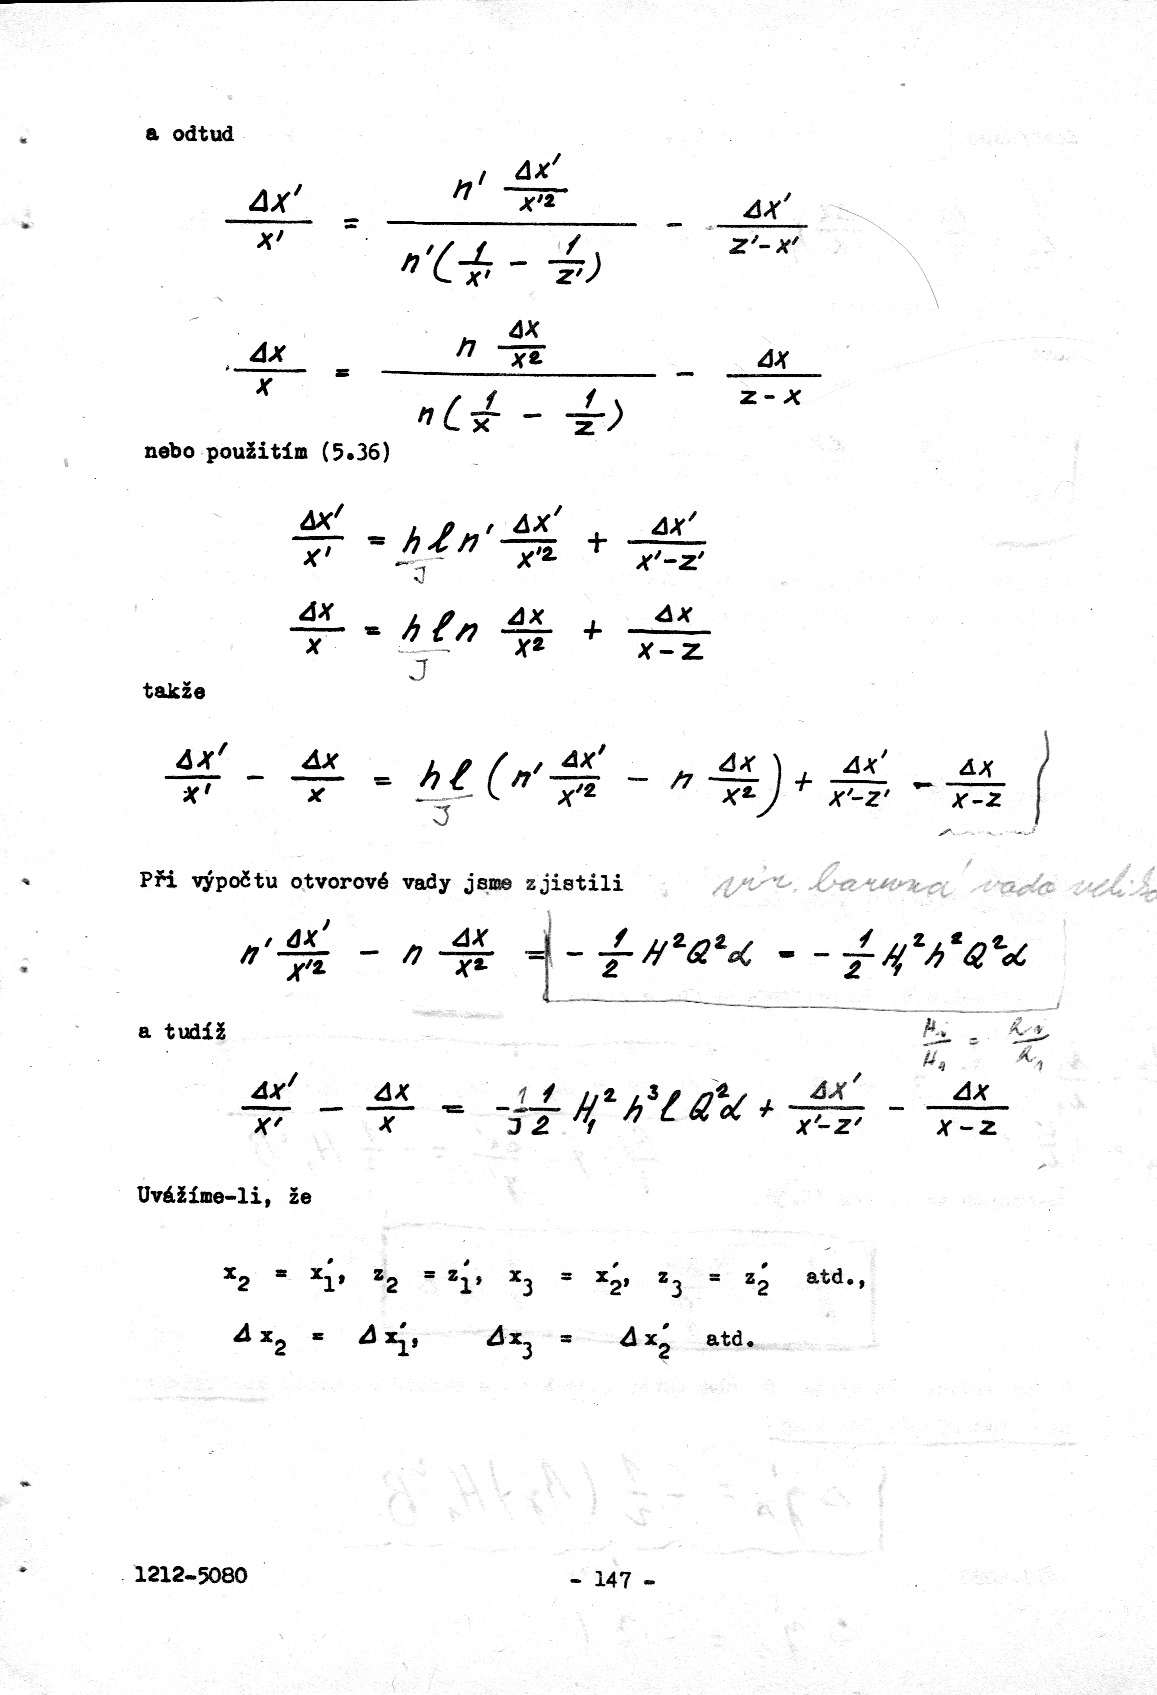 a odtud
Δx'/x' = n' Δx'/x'² / n'(1/x' - 1/z') - Δx'/z'-x'
Δx/x = n Δx/x² / n(1/x - 1/z) - Δx/z-x
nebo použitím (5.36)
Δx'/x' = hl/J n' Δx'/x'² + Δx'/x'-z'
Δx/x = hl/J n Δx/x² + Δx/x-z
takže
Δx'/x' - Δx/x = hl/J (n' Δx'/x'² - n Δx/x²) + Δx'/x'-z' - Δx/x-z
Při výpočtu otvorové vady jsme zjistili
viz. barevná vada
n' Δx'/x'² - n Δx/x² = - 1/2 H²Q²α = - 1/2 H₁²h²Q²α
a tudíž
Δx'/x' - Δx/x = - 1/J 1/2 H₁²h³l Q²α + Δx'/x'-z' - Δx/x-z
Uvážíme-li, že
x₂ = x₁', z₂ = z₁', x₃ = x₂', z₃ = z₂' atd.,
Δx₂ = Δx₁', Δx₃ = Δx₂' atd.
1212-5080
- 147 -